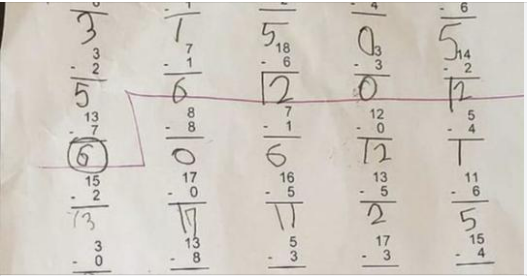 - 1 - 4 - 6
3 1 5 0 5
3 7 18 3 14
- 2 - 1 - 6 - 3 - 2
5 6 12 0 12
13 8 7 12 5
- 7 - 8 - 1 - 0 - 4
6 0 6 12 1
15 17 16 13 11
- 2 - 0 - 5 - 5 - 6
13 17 11 2 5
3 13 5 17 15
- 0 - 8 - 3 - 3 - 4